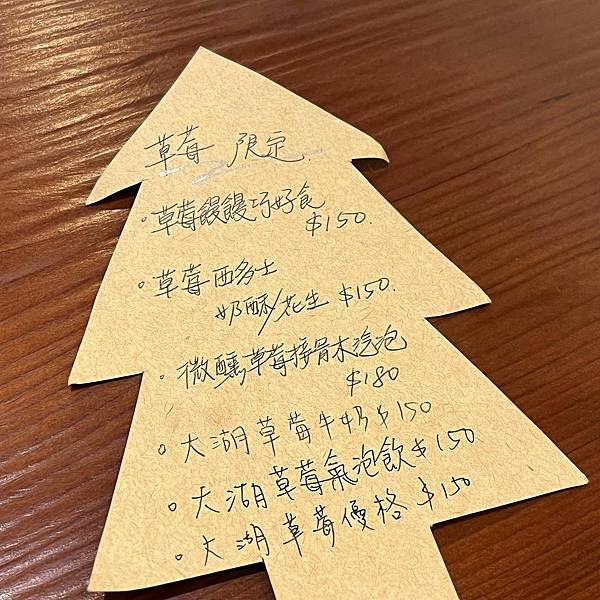 草莓 限定
。草莓饅饅巧好食
$150
。草莓西多士
奶酥/花生 $150.
。微醺草莓接骨木汽泡
$180
。大湖草莓牛奶$150
。大湖草莓氣泡飲$150
。大湖草莓優格 $150